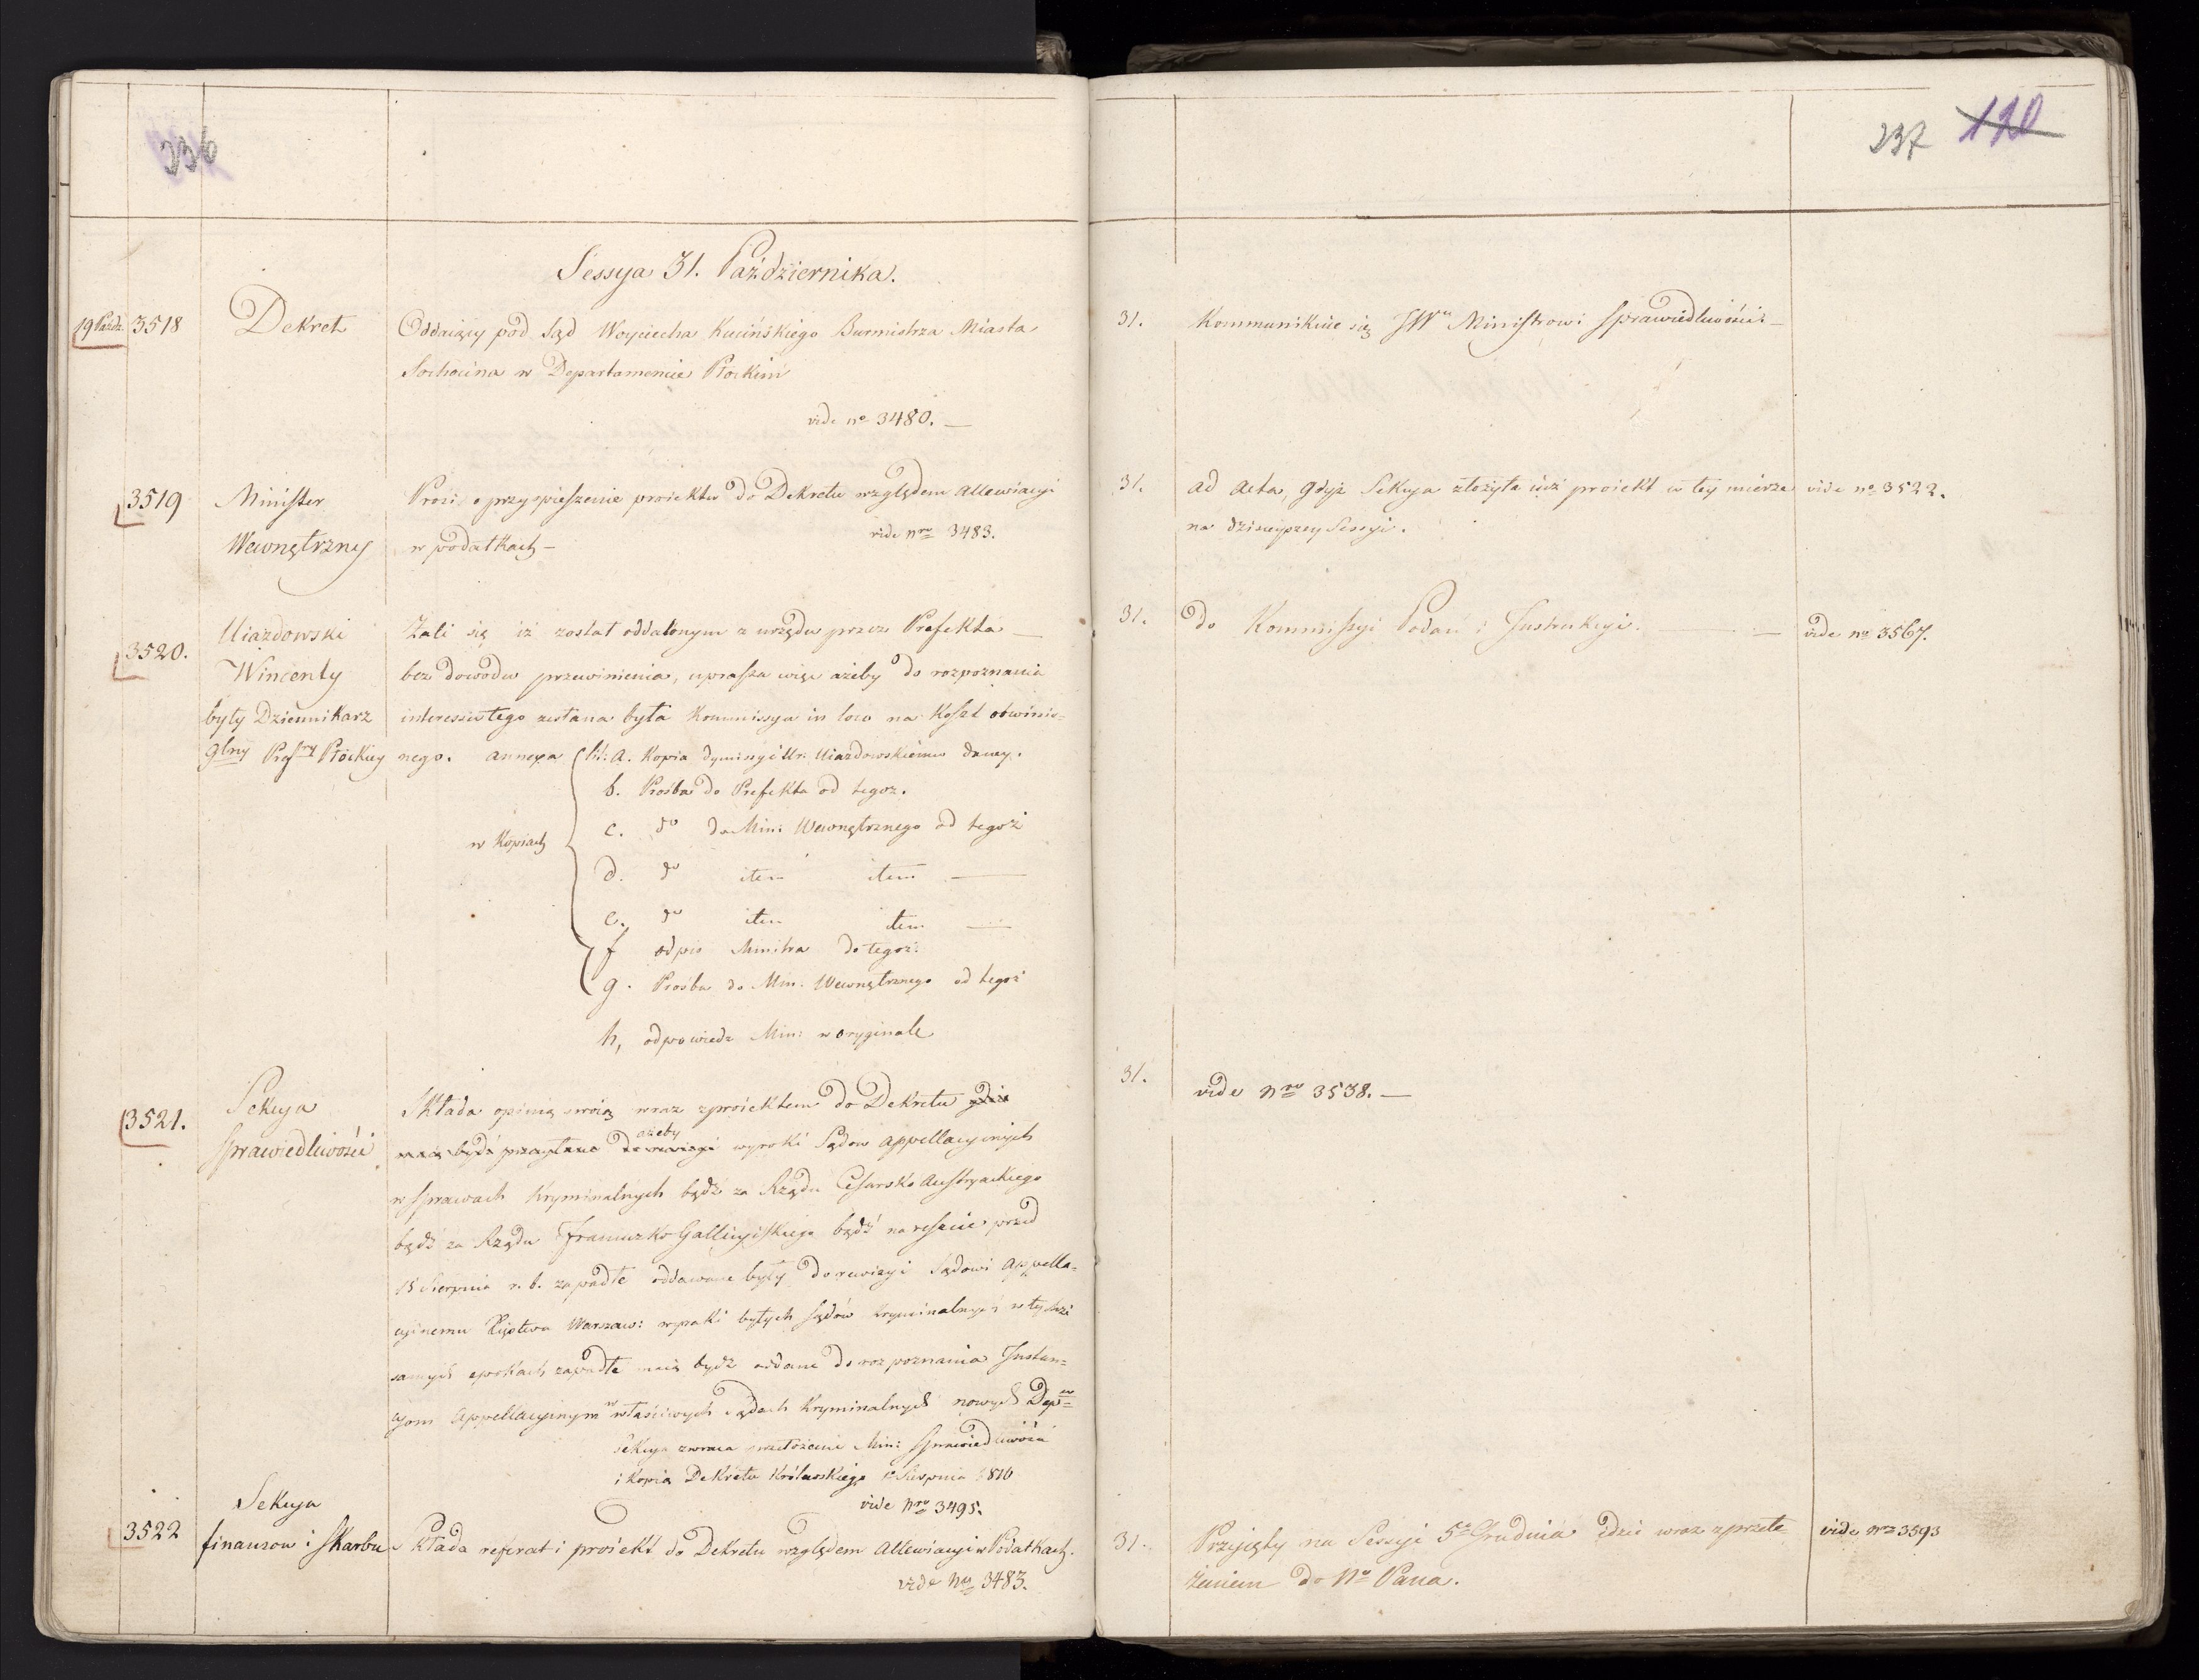 236
Sessya 31. Października.
19 Paźdz. 3518 Dekret Oddaiący pod Sąd Woyciecha Kucińskiego Burmistrza Miasta
Sochocina w Departamencie Płockim
vide no 3480. —
3519 Minister Prosi o przyspieszenie proiektu do Dekretu względem allewiacyi
Wewnętrzny w podatkach — vide nro 3483.
3520. Uiazdowski Żali się iż został oddalonym z urzędu przez Prefekta —
Wincenty bez dowodu przewinienia, uprasza więc ażeby do rozpoznania
były Dziennikarz interessu tego zesłana była Kommissya in loco na koszt obwinio=
glny Prefry Płockiey nego. annexa lit: A. Kopia dymisyi Ur: Uiazdowskiemu daney.
b. Prośba do Prefekta od tegoż.
w Kopiach c. do do Min: Wewnętrznego od tegoż
d. do item item —
e. do item item —
f odpis Ministra do tegoż.
g. Prośba do Min. Wewnętrznego od tegoż
h, odpowiedz Min: w oryginale
3521. Sekcya Składa opinią swoią wraz z proiektem do Dekretu
Sprawiedliwości maią bydź przesyłane do rewizyi ażeby wyroki Sądow appellacyinych
w sprawach kryminalnych bądź za Rządu Cesarsko Austryackiego
bądź za Rządu Francuzko Gallicyiskiego bądź nareszcie przed
15 Sierpnia r. b. zapadłe oddawane były do rewizyi Sądowi Appella=
cyinemu Xięstwa Warszaw: wyroki byłych sądów kryminalnych w tychże
samych epokach zapadłe maią bydź oddane do rozpoznania Instan=
cyom appellacyinym w właściwych sądach kryminalnych nowych Depow=
Sekcya zwraca przełożenie Min: Sprawiedliwości
i kopią Dekretu Królewskiego Sierpnia 1810
vide Nro 3495.
Sekcya
3522 finansow i Skarbu Składa referat i proiekt do Dekretu względem Allewiacyi w Podatkach.
vide No 3483.
237 120
31. Kommunikuie się JWu Ministrowi Sprawiedliwości —
31. ad acta, gdyż Sekcya złożyła iuż proiekt w tey mierze vide no 3522.
na dzisieyszey Sessyi.
31. do Kommissyi Podań i Instrukcyi. — vide no 3567.
31. vide Nro 3538. —
31. Przyięty na Sessyi 5o Grudnia idzie wraz z przeło vide nro 3593
żeniem do No Pana.